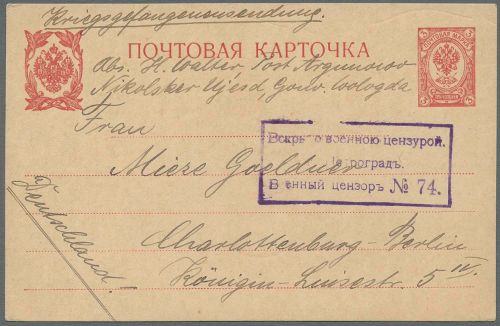 Kriegsgefangenensendung.
ПОЧТОВАЯ КАРТОЧКА
ПОЧТОВАЯ МАРКА
3 3
Abs. H. Walter, Post Argunowo
Nikolsker Ujesd, Gouv. Wologda
Frau
Вскрыто военною цензурой.
Петроградъ.
Военный цензоръ № 74.
Mieze Goeldner
Deutschland!
Charlottenburg-Berlin
Königin-Luisestr. 5 IV.